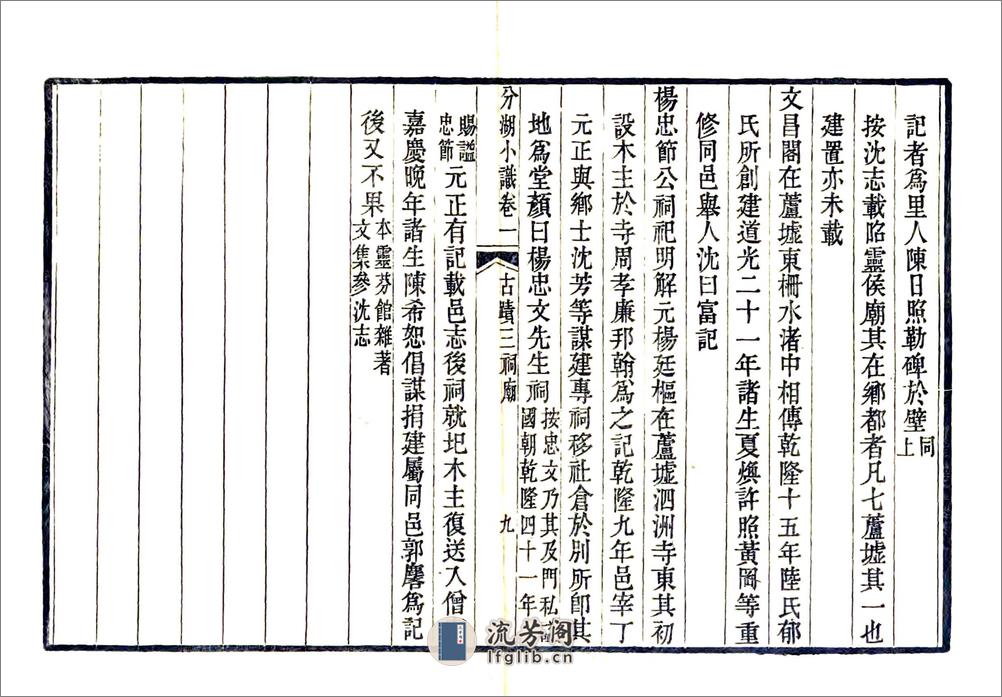 記者爲里人陳日照勒碑於壁同上
按沈志載昭靈侯廟其在鄉都者凡七蘆墟其一也
建置亦未載
文昌閣在蘆墟東柵水渚中相傳乾隆十五年陸氏郁
氏所創建道光二十一年諸生夏燠許照黃岡等重
修同邑舉人沈曰富記
楊忠節公祠祀明解元楊廷樞在蘆墟泗洲寺東其初
設木主於寺周孝廉邦翰爲之記乾隆九年邑宰丁
元正與鄉士沈芳等謀建專祠移社倉於別所卽其
地爲堂顏曰楊忠文先生祠按忠文乃其及門私諡國朝乾隆四十一年
分湖小識卷一 古蹟三祠廟 九
賜諡忠節元正有記載邑志後祠就圮木主復送入僧
嘉慶晚年諸生陳希恕倡謀捐建屬同邑郭麐爲記
後又不果本靈芬館雜著文集參沈志
流芳阁
lfglib.cn